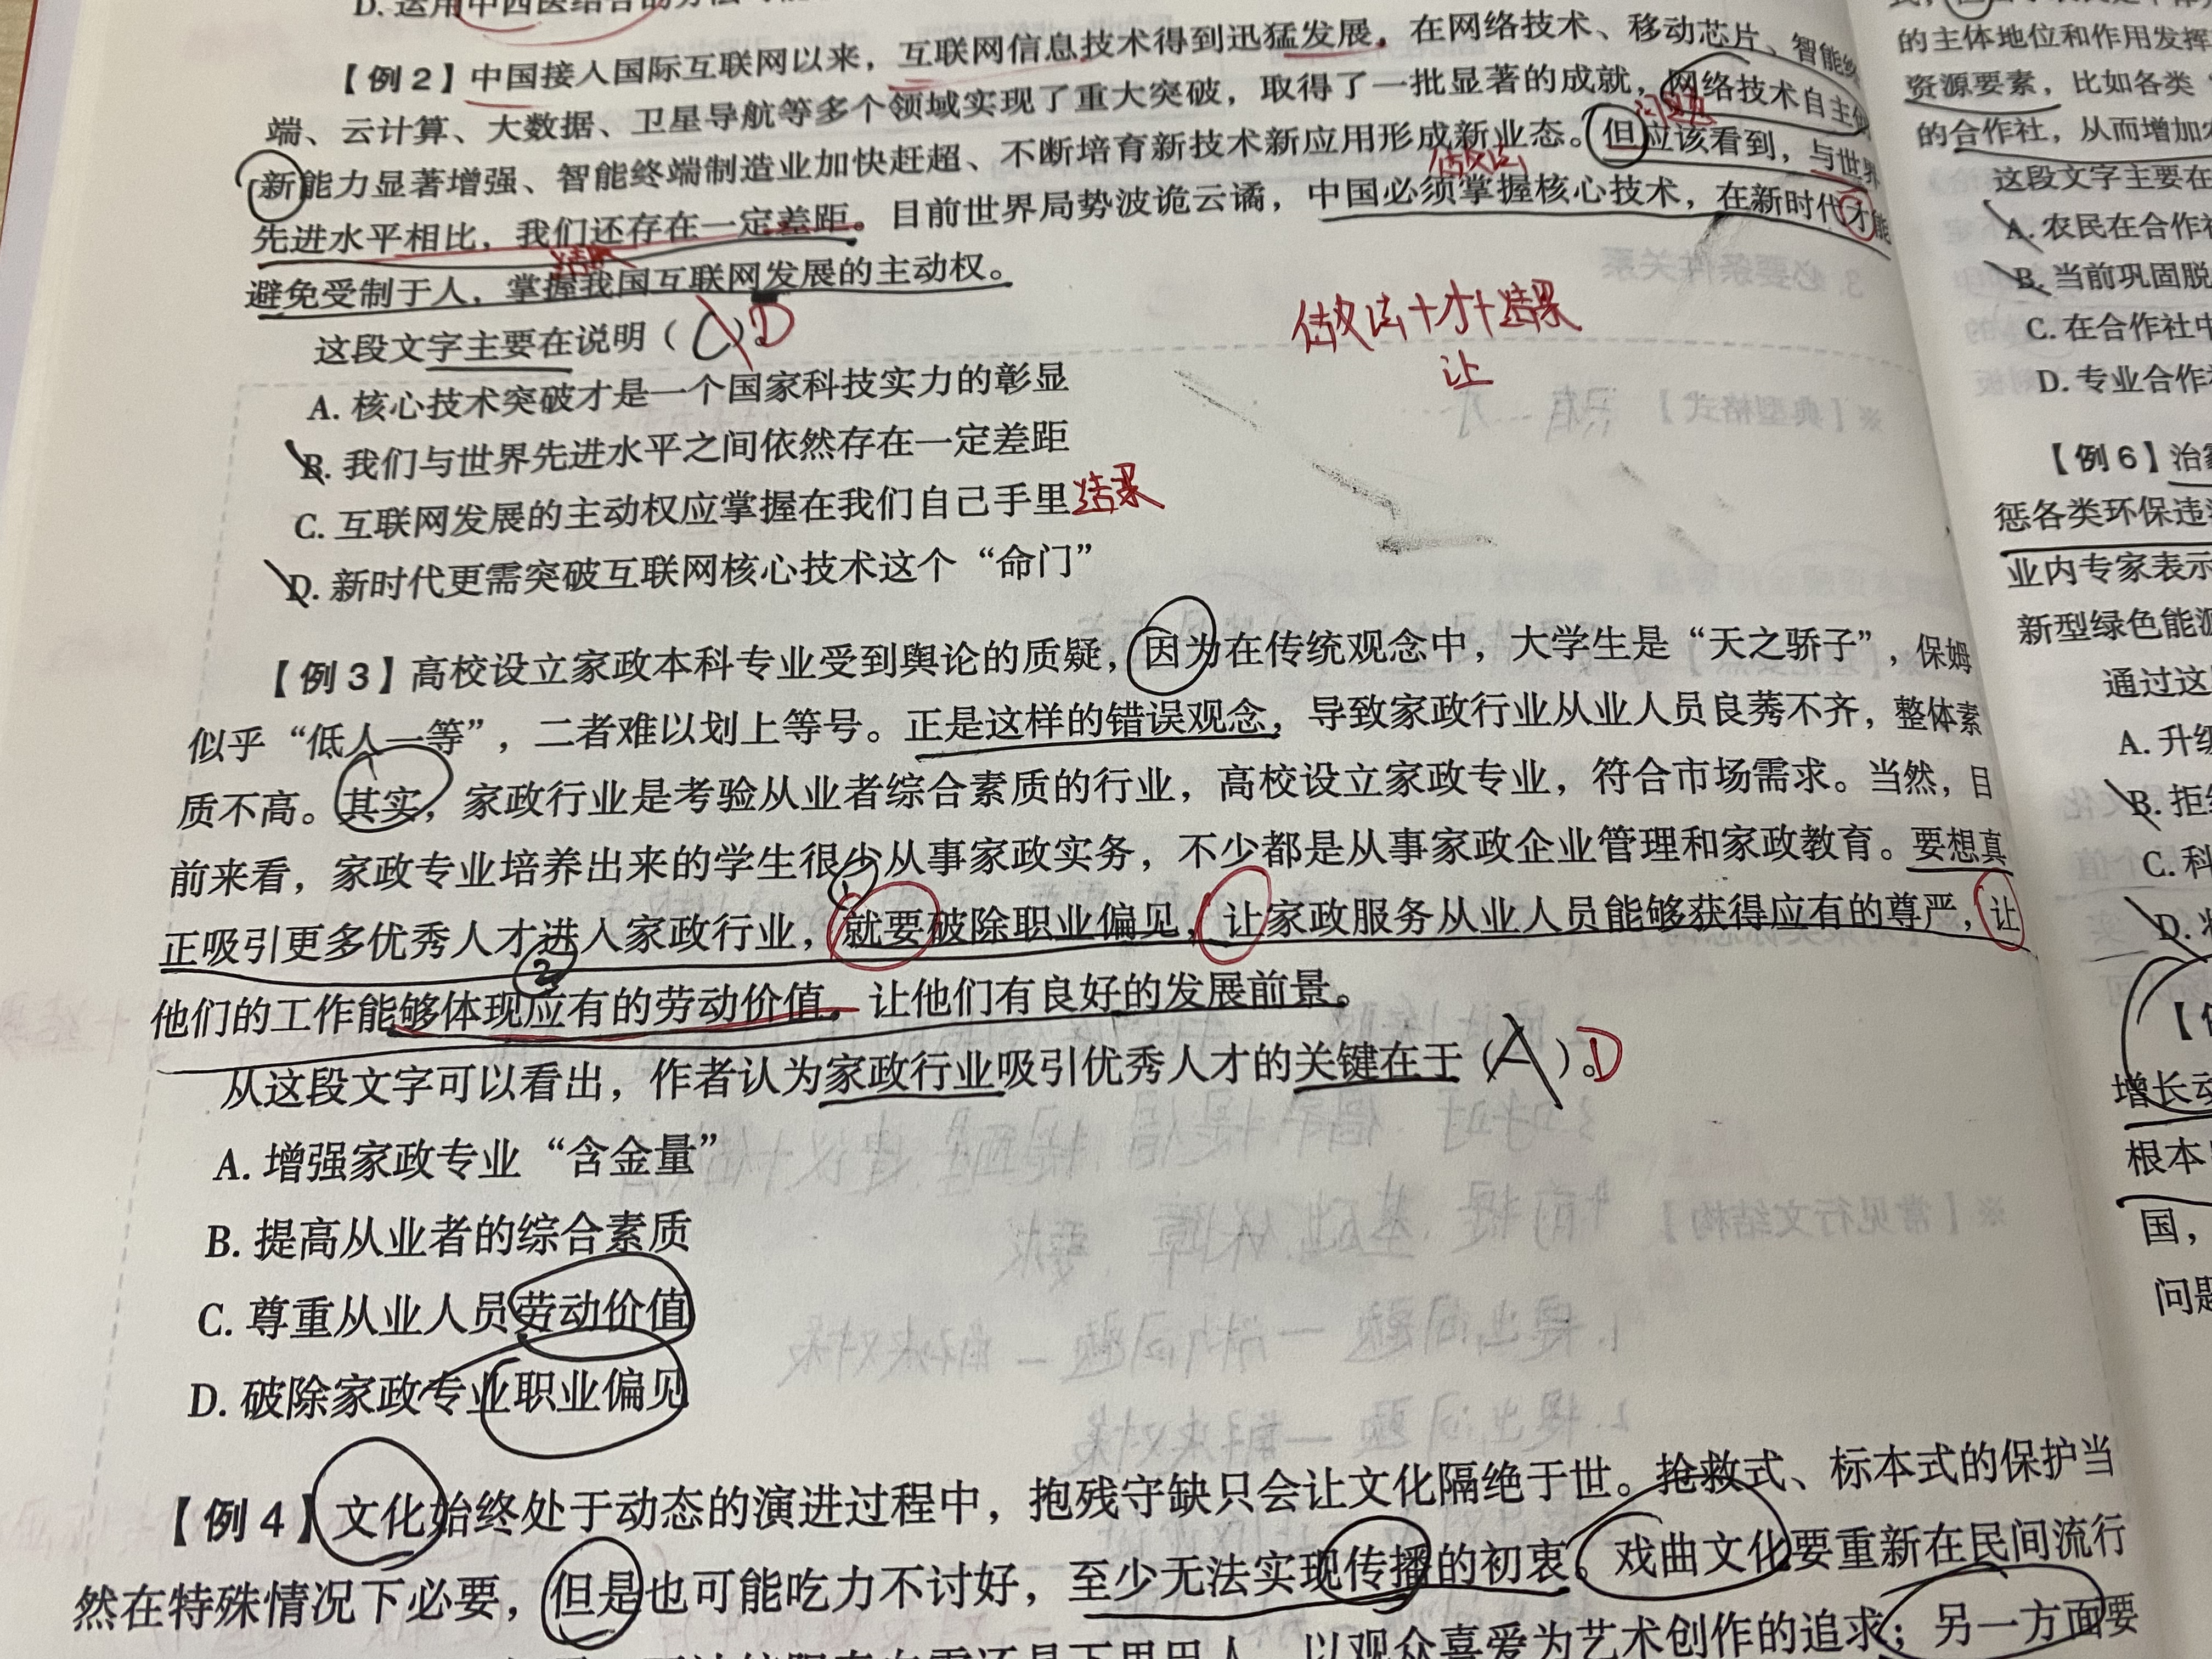 D. 运用中西医结合的方法
【例2】中国接人国际互联网以来，互联网信息技术得到迅猛发展。在网络技术、移动芯片、智能终
端、云计算、大数据、卫星导航等多个领域实现了重大突破，取得了一批显著的成就，网络技术自主创
问题
新能力显著增强、智能终端制造业加快赶超、不断培育新技术新应用形成新业态。但应该看到，与世界
做法
先进水平相比，我们还存在一定差距。目前世界局势波诡云谲，中国必须掌握核心技术，在新时代才能
结果
避免受制于人，掌握我国互联网发展的主动权。
这段文字主要在说明（C）。D
做法+才+结果
让
A. 核心技术突破才是一个国家科技实力的彰显
B. 我们与世界先进水平之间依然存在一定差距
C. 互联网发展的主动权应掌握在我们自己手里 结果
D. 新时代更需突破互联网核心技术这个“命门”
【例3】高校设立家政本科专业受到舆论的质疑，因为在传统观念中，大学生是“天之骄子”，保姆
似乎“低人一等”，二者难以划上等号。正是这样的错误观念，导致家政行业从业人员良莠不齐，整体素
质不高。其实，家政行业是考验从业者综合素质的行业，高校设立家政专业，符合市场需求。当然，目
前来看，家政专业培养出来的学生很少从事家政实务，不少都是从事家政企业管理和家政教育。要想真
①
正吸引更多优秀人才进入家政行业，就要破除职业偏见，让家政服务从业人员能够获得应有的尊严，让
②
他们的工作能够体现应有的劳动价值。让他们有良好的发展前景。
从这段文字可以看出，作者认为家政行业吸引优秀人才的关键在于（A）。D
A. 增强家政专业“含金量”
B. 提高从业者的综合素质
C. 尊重从业人员劳动价值
D. 破除家政专业职业偏见
【例4】文化始终处于动态的演进过程中，抱残守缺只会让文化隔绝于世。抢救式、标本式的保护当
然在特殊情况下必要，但是也可能吃力不讨好，至少无法实现传播的初衷。戏曲文化要重新在民间流行
以观众喜爱为艺术创作的追求；另一方面要
的主体地位和作用发挥
资源要素，比如各类
的合作社，从而增加
这段文字主要在
A. 农民在合作社
B. 当前巩固脱
C. 在合作社中
D. 专业合作
【例6】治
惩各类环保违
业内专家表示
新型绿色能源
通过这
A. 升级
B. 拒
C. 科
D.
增长动
根本
国，
问题